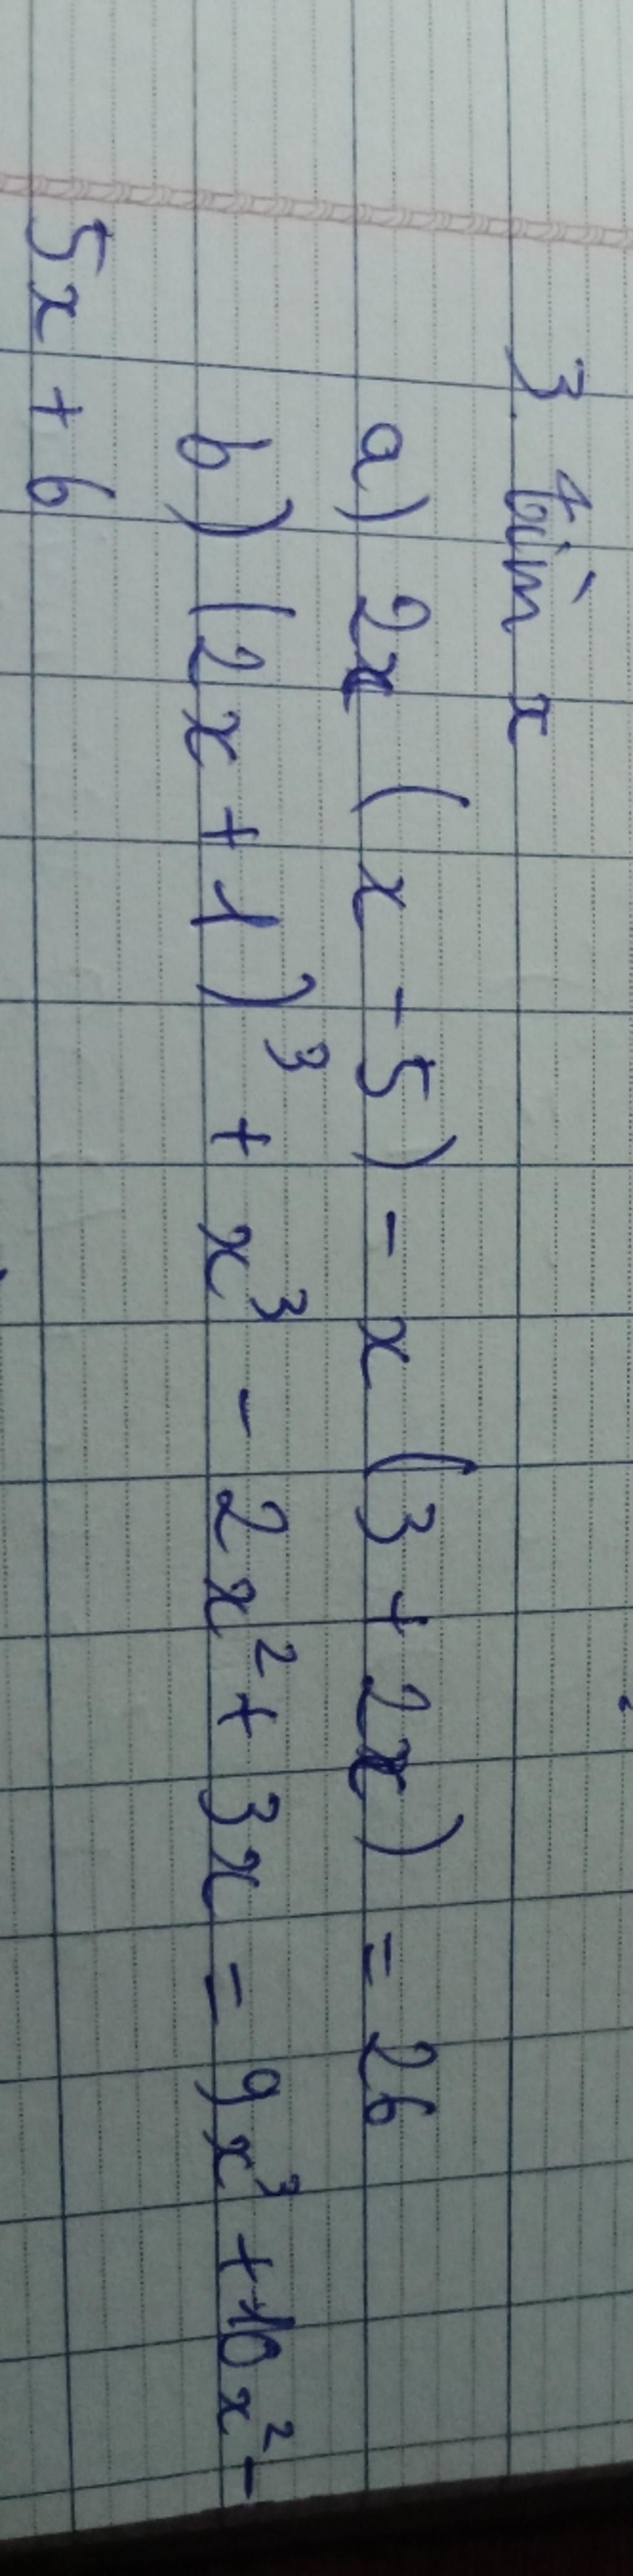 3. tìm x
a) 2x (x - 5) - x (3 + 2x) = 26
b) (2x + 1)³ + x³ - 2x² + 3x = 9x³ + 10x² -
5x + 6